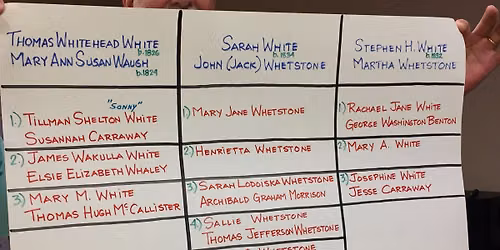 THOMAS WHITEHEAD WHITE
b.1826
MARY ANN SUSAN WAUGH
b.1829
"SONNY"
1) TILLMAN SHELTON WHITE
SUSANNAH CARRAWAY
2) JAMES WAKULLA WHITE
ELSIE ELIZABETH WHALEY
3) MARY M. WHITE
THOMAS HUGH McCALLISTER
SARAH WHITE
b.1834
JOHN (JACK) WHETSTONE
1) MARY JANE WHETSTONE
2) HENRIETTA WHETSTONE
3) SARAH LODOISKA WHETSTONE
ARCHIBALD GRAHAM MORRISON
4) SALLIE WHETSTONE
THOMAS JEFFERSON WHETSTONE
WHETSTONE
STEPHEN H. WHITE
b.1832
MARTHA WHETSTONE
1) RACHAEL JANE WHITE
GEORGE WASHINGTON BENTON
2) MARY A. WHITE
3) JOSEPHINE WHITE
JESSE CARRAWAY